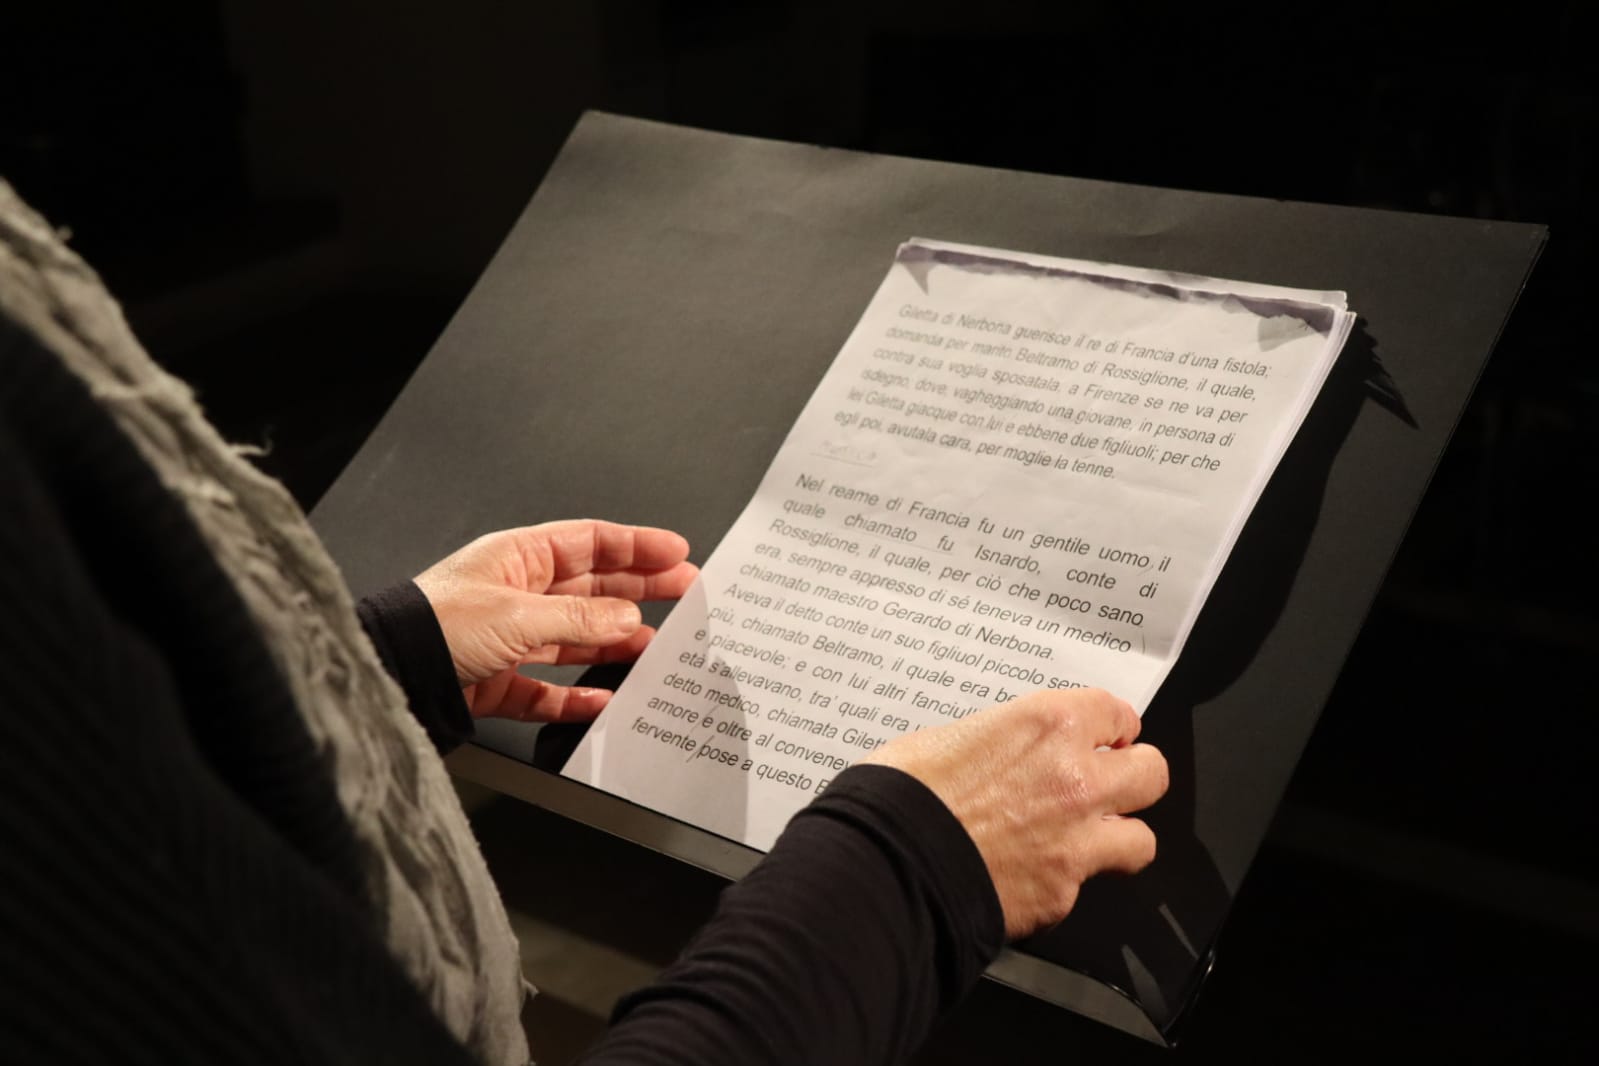 Giletta di Nerbona guerisce il re di Francia d'una fistola;
domanda per marito Beltramo di Rossiglione, il quale,
contra sua voglia sposatala, a Firenze se ne va per
isdegno, dove, vagheggiando una giovane, in persona di
lei Giletta giacque con lui e ebbene due figliuoli; per che
egli poi, avutala cara, per moglie la tenne.
Nel reame di Francia fu un gentile uomo il
quale chiamato fu Isnardo, conte di
Rossiglione, il quale, per ciò che poco sano
era, sempre appresso di sé teneva un medico
chiamato maestro Gerardo di Nerbona.
Aveva il detto conte un suo figliuol piccolo
più, chiamato Beltramo, il quale era
e piacevole; e con lui altri
età s'allevavano, tra' quali era
detto medico, chiamata
amore e oltre al
fervente pose a questo